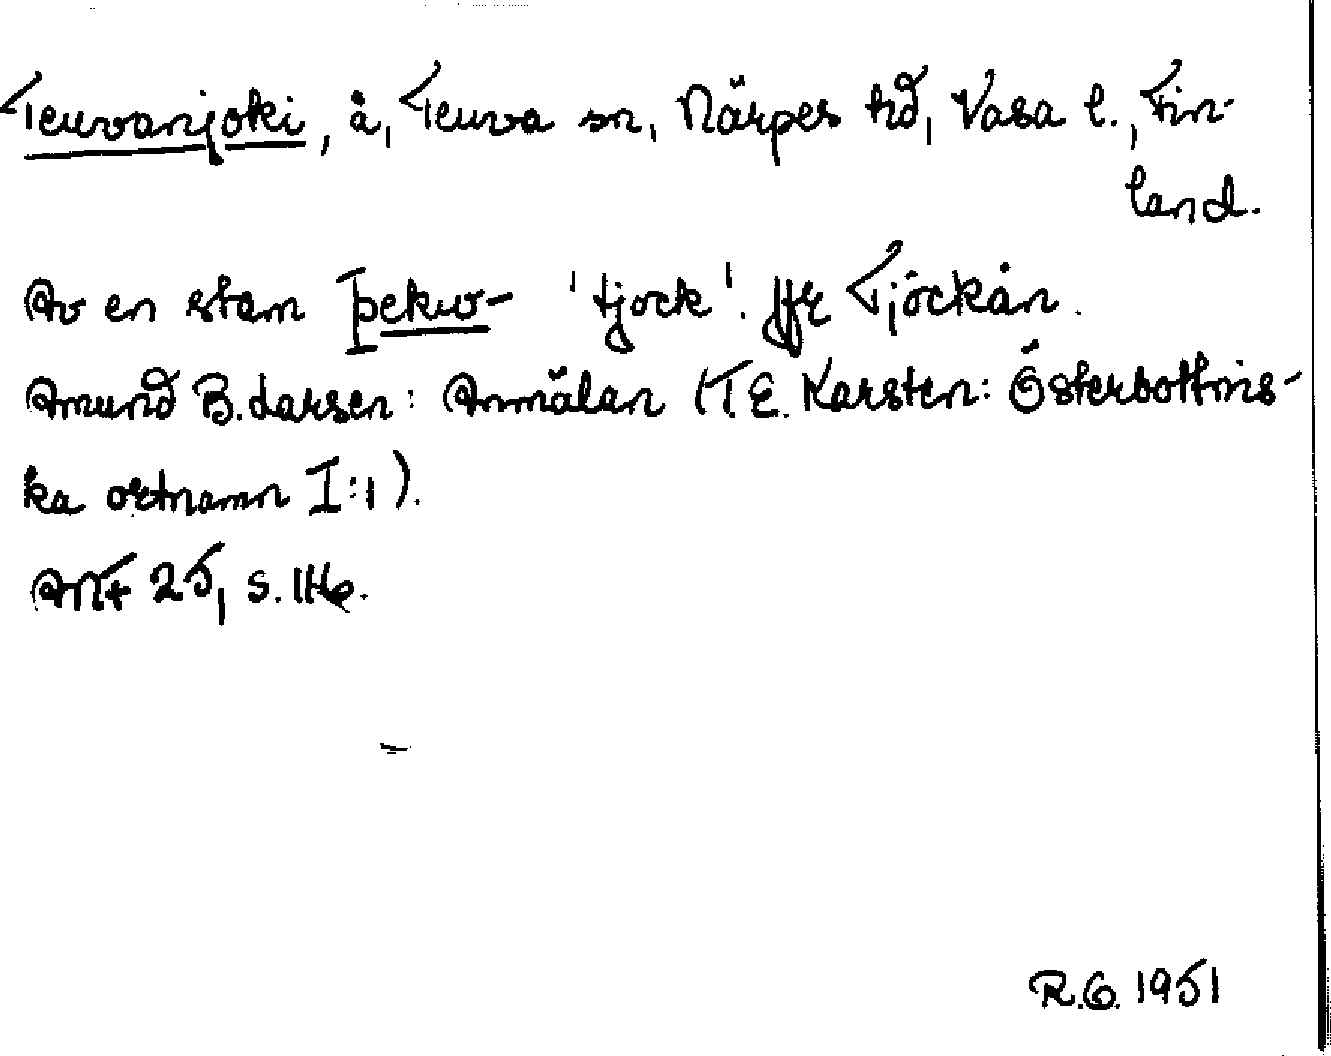 Teuvanjoki, å, Teuva sn, Närpes hd, Vasa l., Fin-
land.
Av en stam þekw- 'tjock'. Jfr Tjöckån.
Amund B. Larsen: Anmälan (T.E. Karsten: Österbottnis-
ka ortnamn I:1).
ANF 25, s. 116.
R.G. 1951